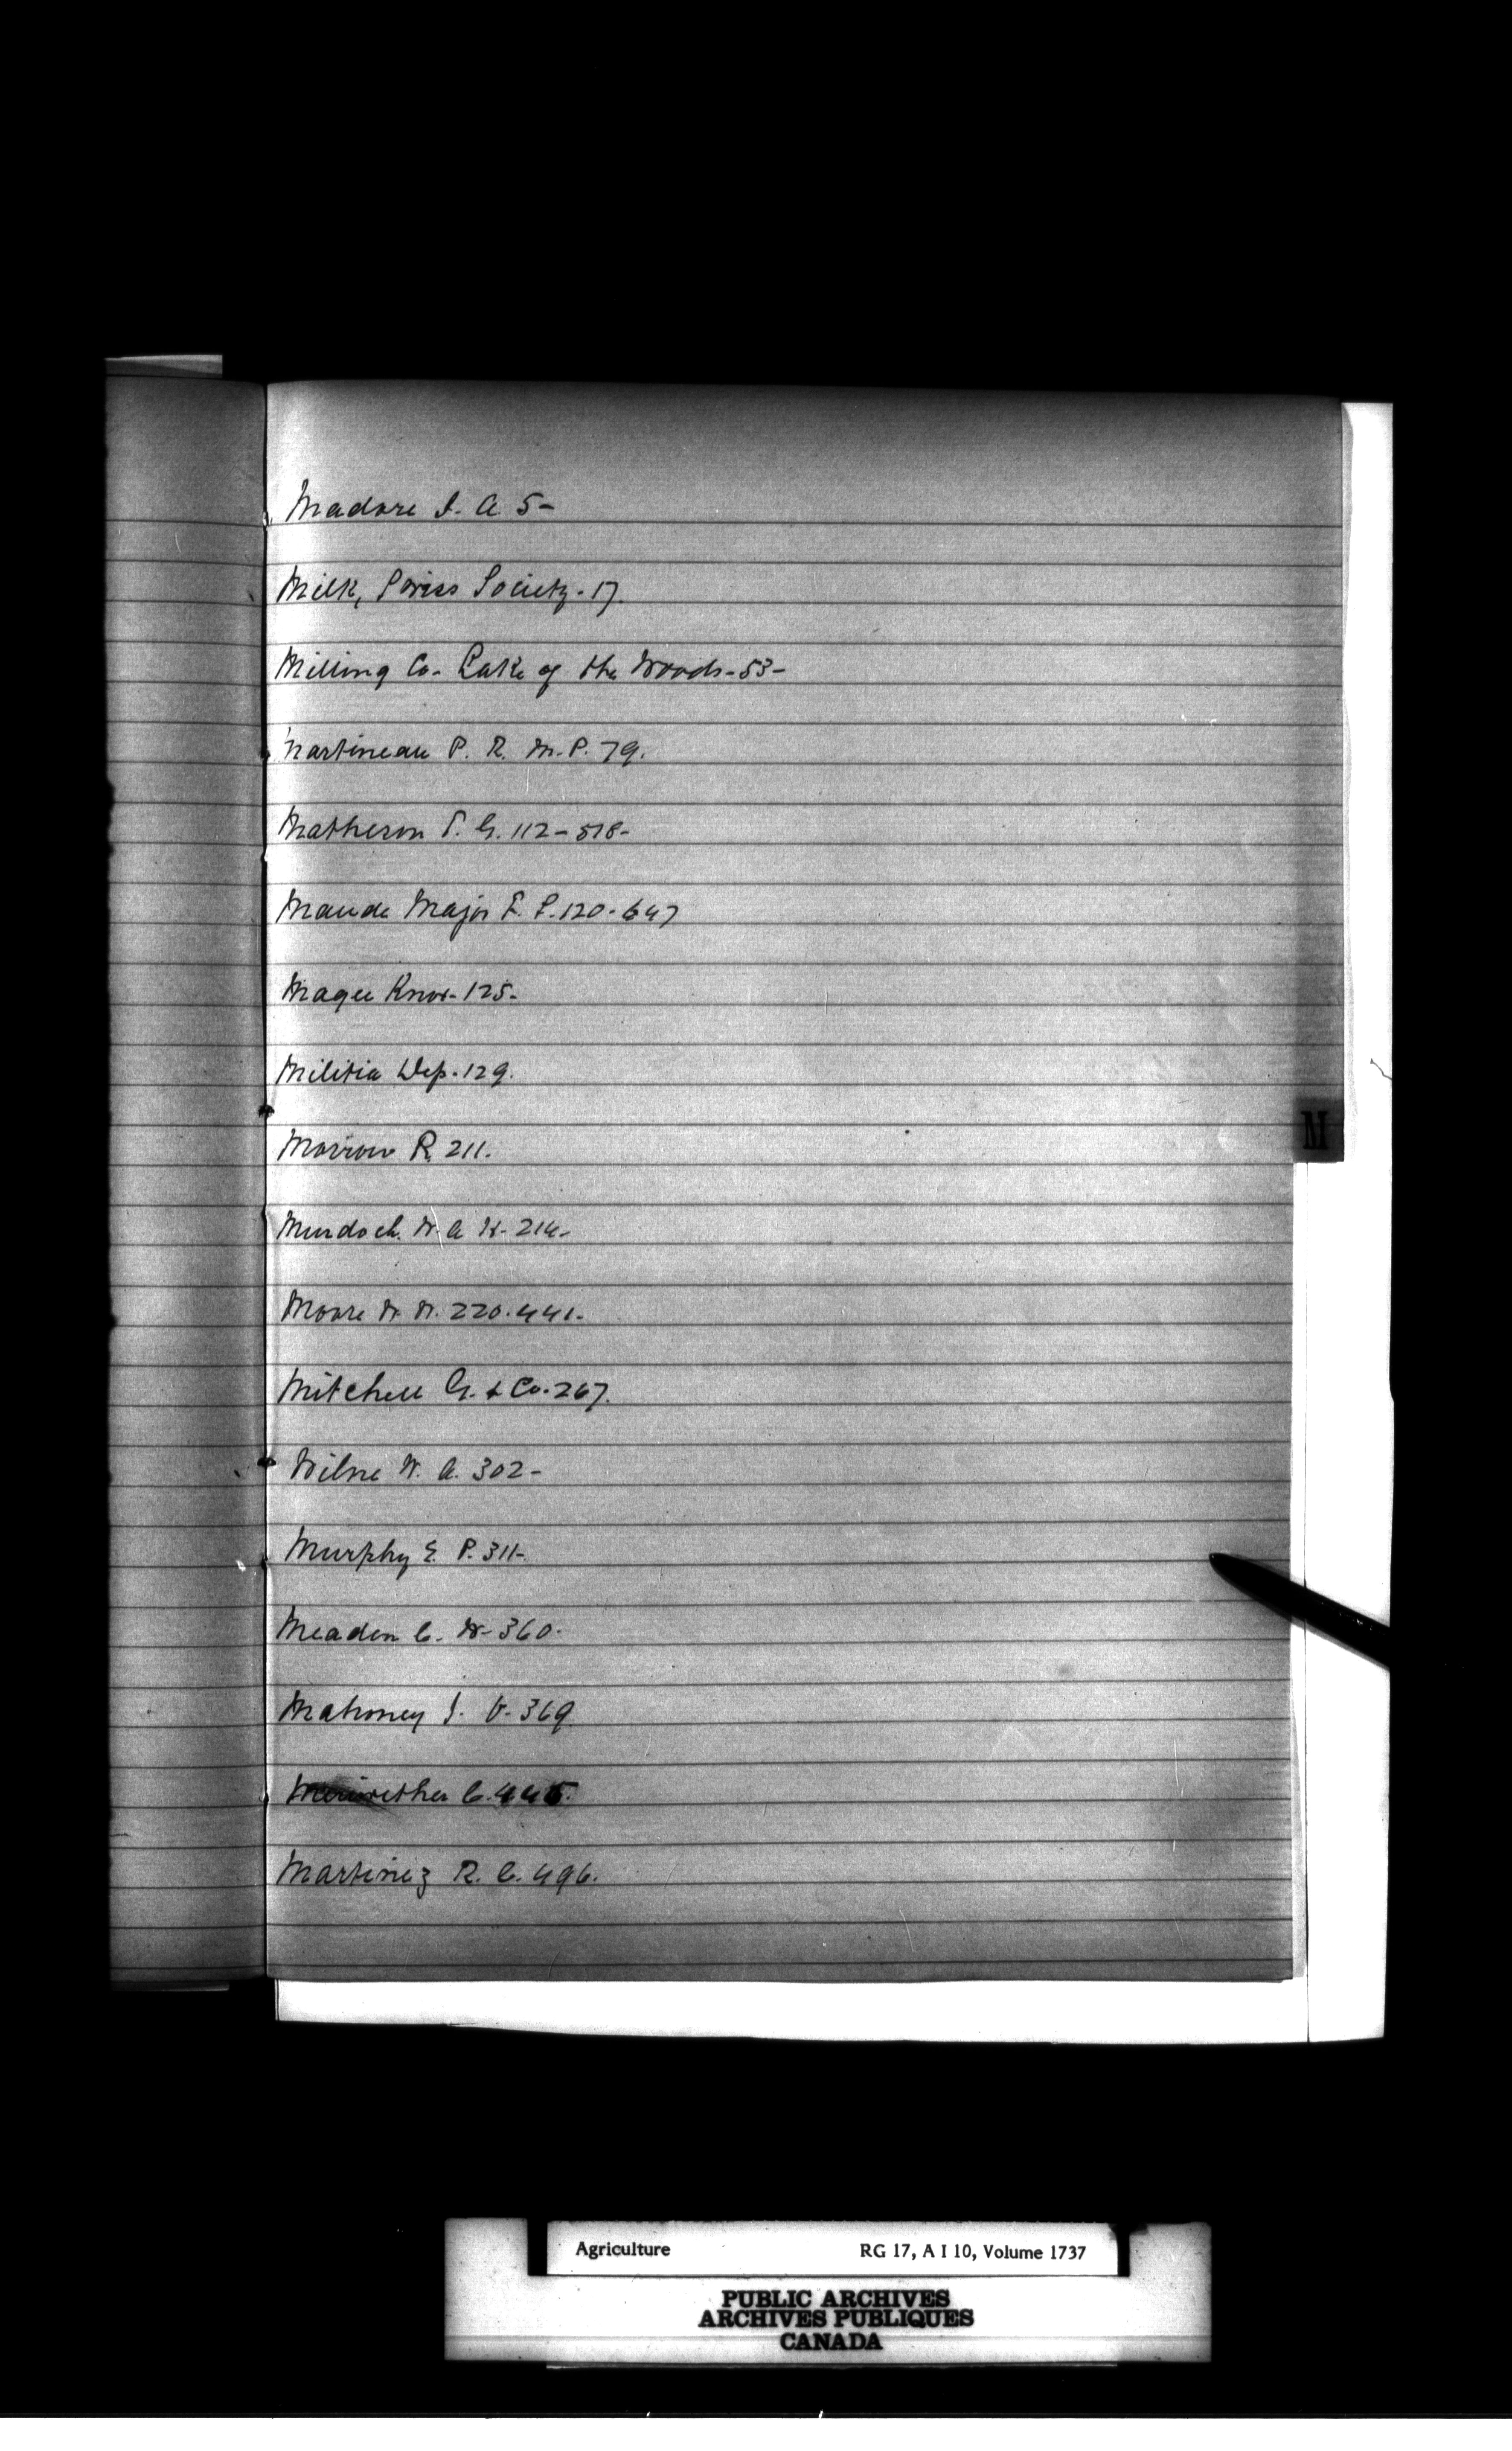 Madore J. A. 5-
Milk, Swiss Society - 17.
Milling Co. Lake of the Woods - 53 -
Martineau P. R. M. P. 79.
Matheson T. G. 112 - 518 -
Maude Major F. P. 120 - 647
Magee Knox - 125 -
Militia Dep. 129.
Morrow R. 211.
Murdoch. W. A. H - 214 -
Moore W. W. 220. 441 -
Mitchell G. & Co. 267.
Milne W. A. 302 -
Murphy E. P. 311 -
Meaden C. W - 360 -
Mahoney J. V - 369
Meriwether C. 445.
Martinez R. C. 496.
M
Agriculture RG 17, A I 10, Volume 1737
PUBLIC ARCHIVES
ARCHIVES PUBLIQUES
CANADA